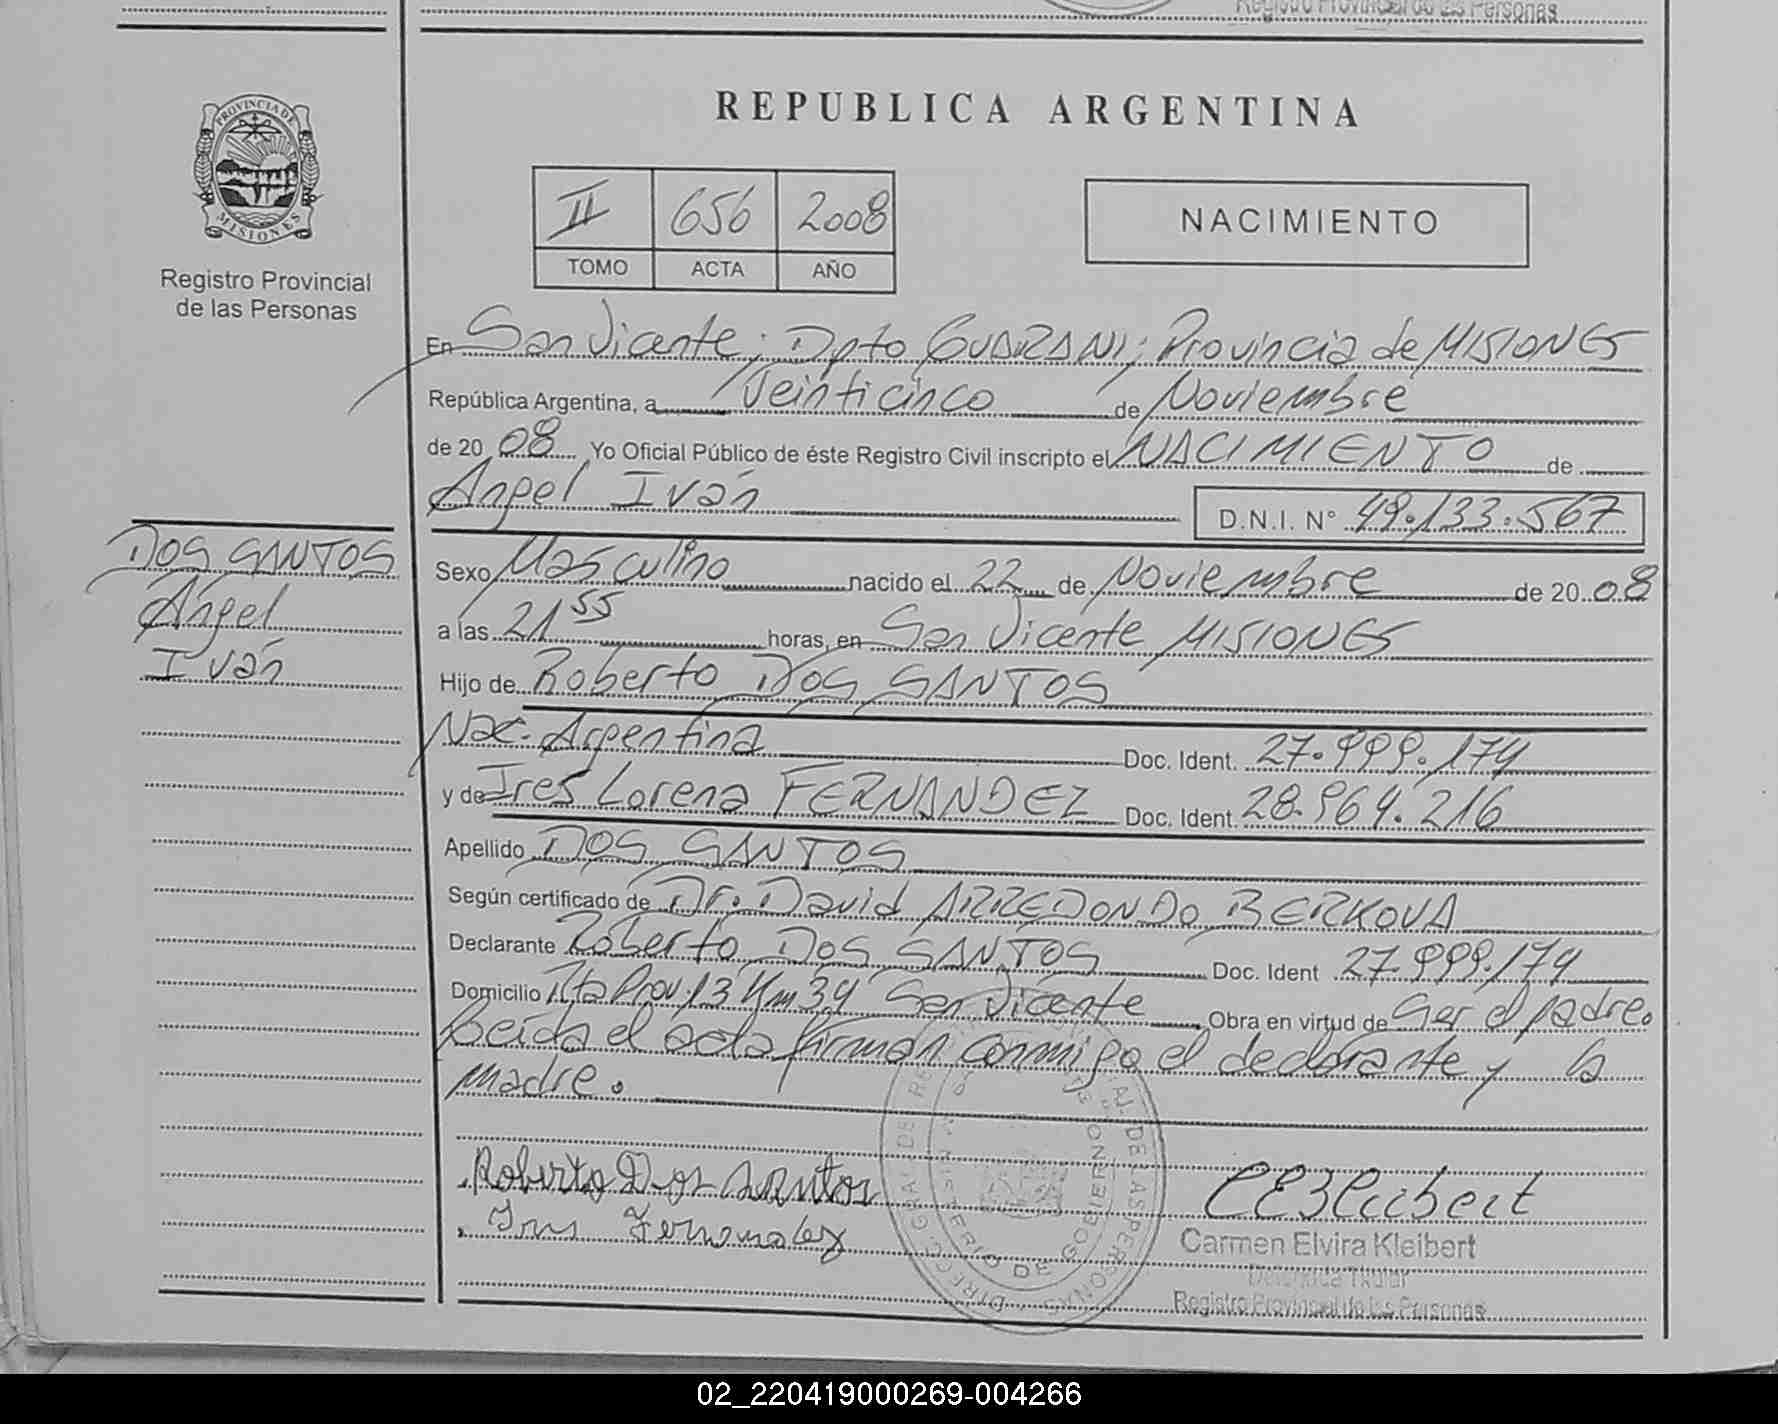 Registro Provincial de las Personas
PROVINCIA DE
MISIONES
Registro Provincial
de las Personas
REPUBLICA ARGENTINA
II 656 2008
TOMO ACTA AÑO
NACIMIENTO
En San Vicente; Dpto GUARANI; Provincia de MISIONES
República Argentina, a Veinticinco de Noviembre
de 20 08 Yo Oficial Público de éste Registro Civil inscripto el NACIMIENTO de
Angel Iván D.N.I. N° 49.133.567
DOS SANTOS
Angel
Iván
Sexo Masculino nacido el 22 de Noviembre de 20 08
a las 21 55 horas, en San Vicente MISIONES
Hijo de Roberto DOS SANTOS
Nac. Argentina Doc. Ident. 27.999.174
y de Ires Lorena FERNANDEZ Doc. Ident. 28.964.216
Apellido DOS SANTOS
Según certificado de Dr. David ARREDONDO BERKOVA
Declarante Roberto DOS SANTOS Doc. Ident 27.999.174
Domicilio Rta Prov. 13 Km 34 San Vicente Obra en virtud de Ser el padre.
Leída el acta firman conmigo el declarante y la
madre.
Roberto Dos Santos
Fernandez
Carmen Elvira Kleibert
Delegada Titular
Registro Provincial de las Personas
MINISTERIO DE GOBIERNO
02_220419000269-004266